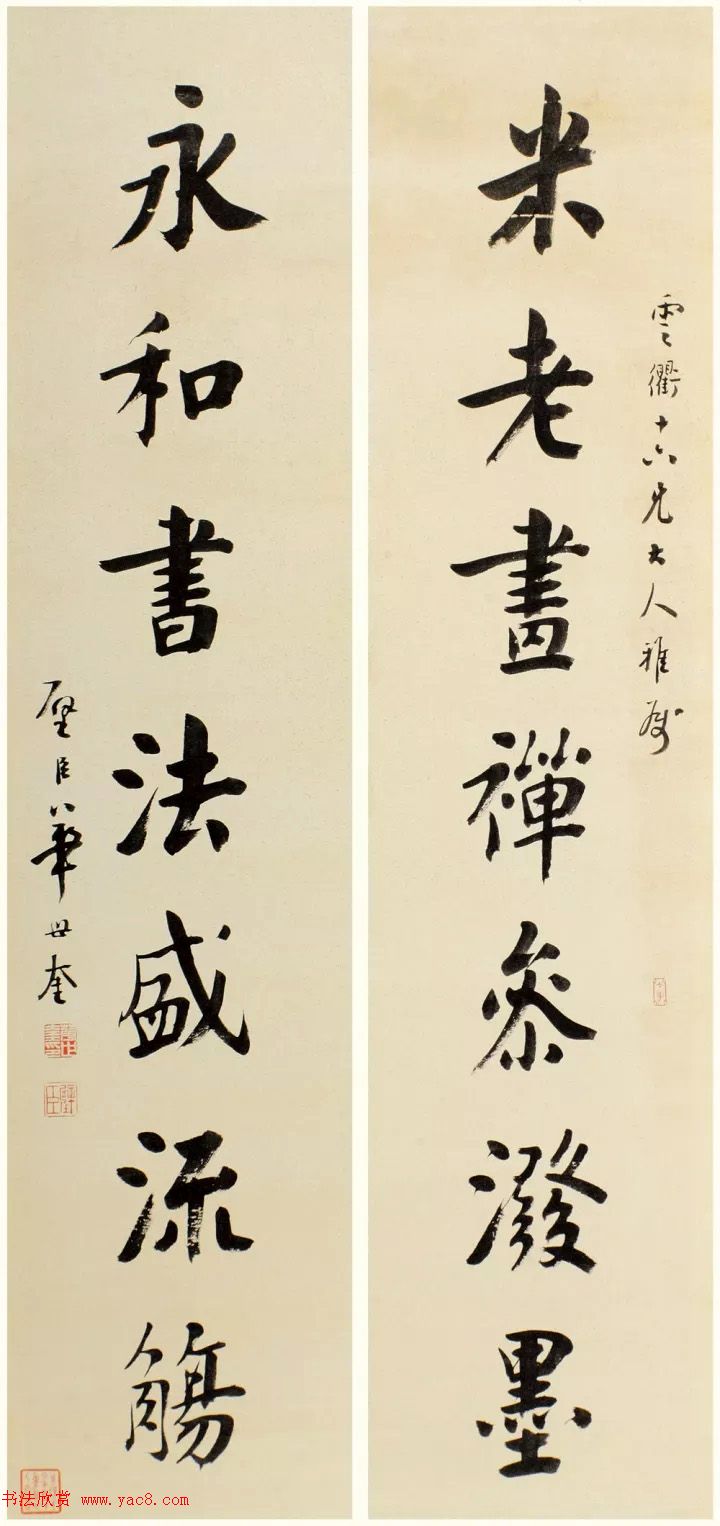 米老畫禪参潑墨
雲衢十六兄大人雅屬
永和書法盛流觴
壁臣華世奎
书法欣赏 www.yac8.com